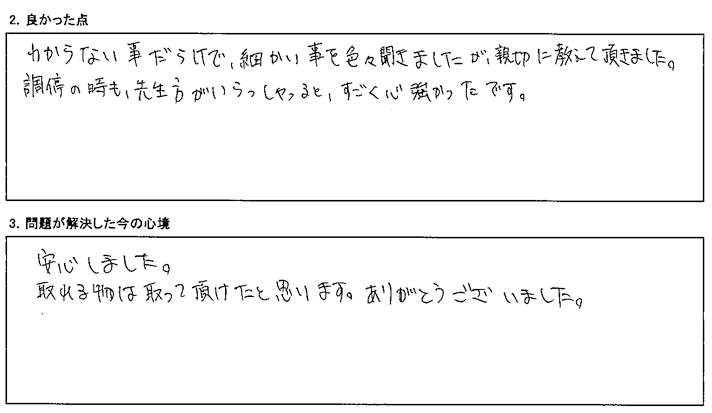 2. 良かった点
わからない事だらけで、細かい事を色々聞きましたが、親切に教えて頂きました。
調停の時も、先生方がいらっしゃると、すごく心強かったです。
3. 問題が解決した今の心境
安心しました。
取れる物は取って頂けたと思います。ありがとうございました。